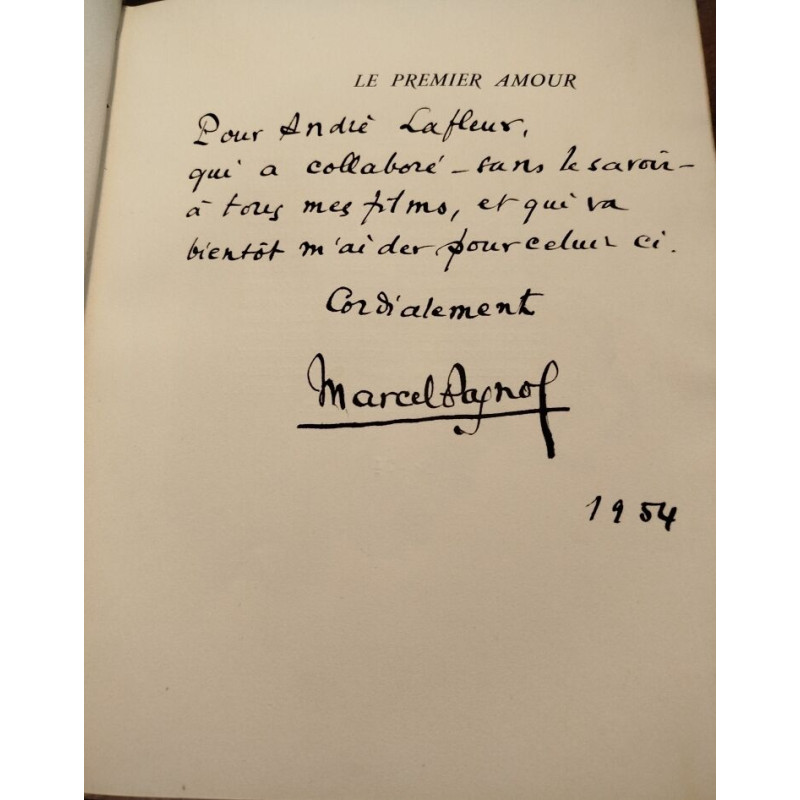 LE PREMIER AMOUR
Pour André Lafleur,
qui a collaboré – sans le savoir –
à tous mes films, et qui va
bientôt m'aider pour celui ci.
Cordialement
Marcel Pagnol
1954